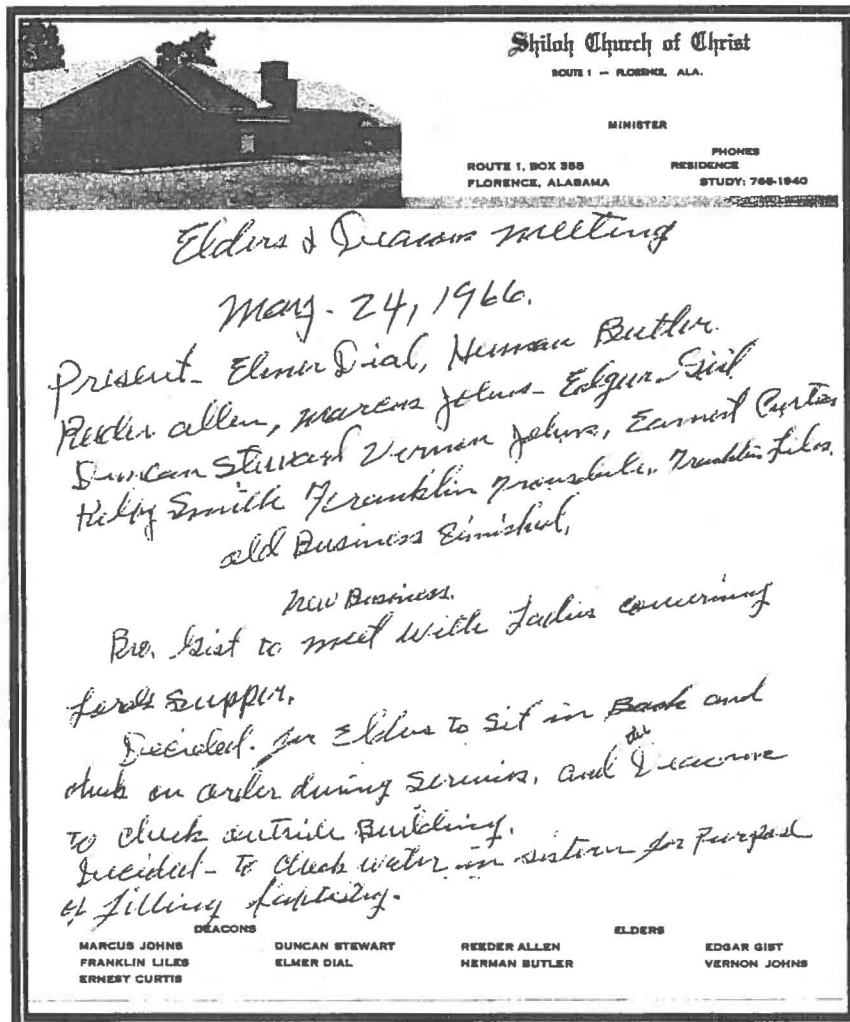 Shiloh Church of Christ
ROUTE 1 — FLORENCE, ALA.
MINISTER
PHONES
ROUTE 1, BOX 355 RESIDENCE
FLORENCE, ALABAMA STUDY: 766-1940
Elders & Deacons meeting
May - 24, 1966.
Present - Elmer Dial, Herman Butler
Reeder Allen, Marcus Johns - Edgar Gist
Duncan Steward Vernon Johns, Earnest Curtis
Kelby Smith Franklin Trousdale, Franklin Liles.
old Business Finished,
New Business.
Bro. Gist to meet with Ladies concerning
Lords Supper.
Decided - for Elders to sit in Back and
the
check on order during Services, and Deacons
to check outside Building.
Decided - to check water in sistern for Purpose
of filling baptistry.
DEACONS ELDERS
MARCUS JOHNS DUNCAN STEWART REEDER ALLEN EDGAR GIST
FRANKLIN LILES ELMER DIAL HERMAN BUTLER VERNON JOHNS
ERNEST CURTIS